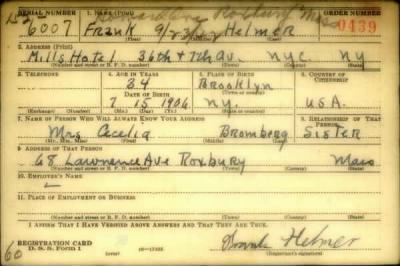 SERIAL NUMBER 1. NAME (Print) ORDER NUMBER
6007 Frank Helmer 0439
2. ADDRESS (Print)
Mills Hotel 36th + 7th Av. N.Y.C. NY
(Number and street or R. F. D. number) (Town) (County) (State)
3. TELEPHONE 4. AGE IN YEARS 5. PLACE OF BIRTH 6. COUNTRY OF CITIZENSHIP
34 Brooklyn
DATE OF BIRTH
7 15 1906 N.Y. U.S.A.
(Exchange) (Number) (Mo.) (Day) (Yr.) (State or country)
7. NAME OF PERSON WHO WILL ALWAYS KNOW YOUR ADDRESS 8. RELATIONSHIP OF THAT PERSON
Mrs Cecelia Bromberg Sister
(Mr., Mrs., Miss) (First) (Middle) (Last)
9. ADDRESS OF THAT PERSON
68 Lawrence Ave Roxbury Mass
(Number and street or R. F. D. number) (Town) (County) (State)
10. EMPLOYER'S NAME
—
11. PLACE OF EMPLOYMENT OR BUSINESS
(Number and street or R. F. D. number) (Town) (County) (State)
I AFFIRM THAT I HAVE VERIFIED ABOVE ANSWERS AND THAT THEY ARE TRUE.
REGISTRATION CARD Frank Helmer
D. S. S. Form 1 (over) 16—17105 (Registrant's signature)
60